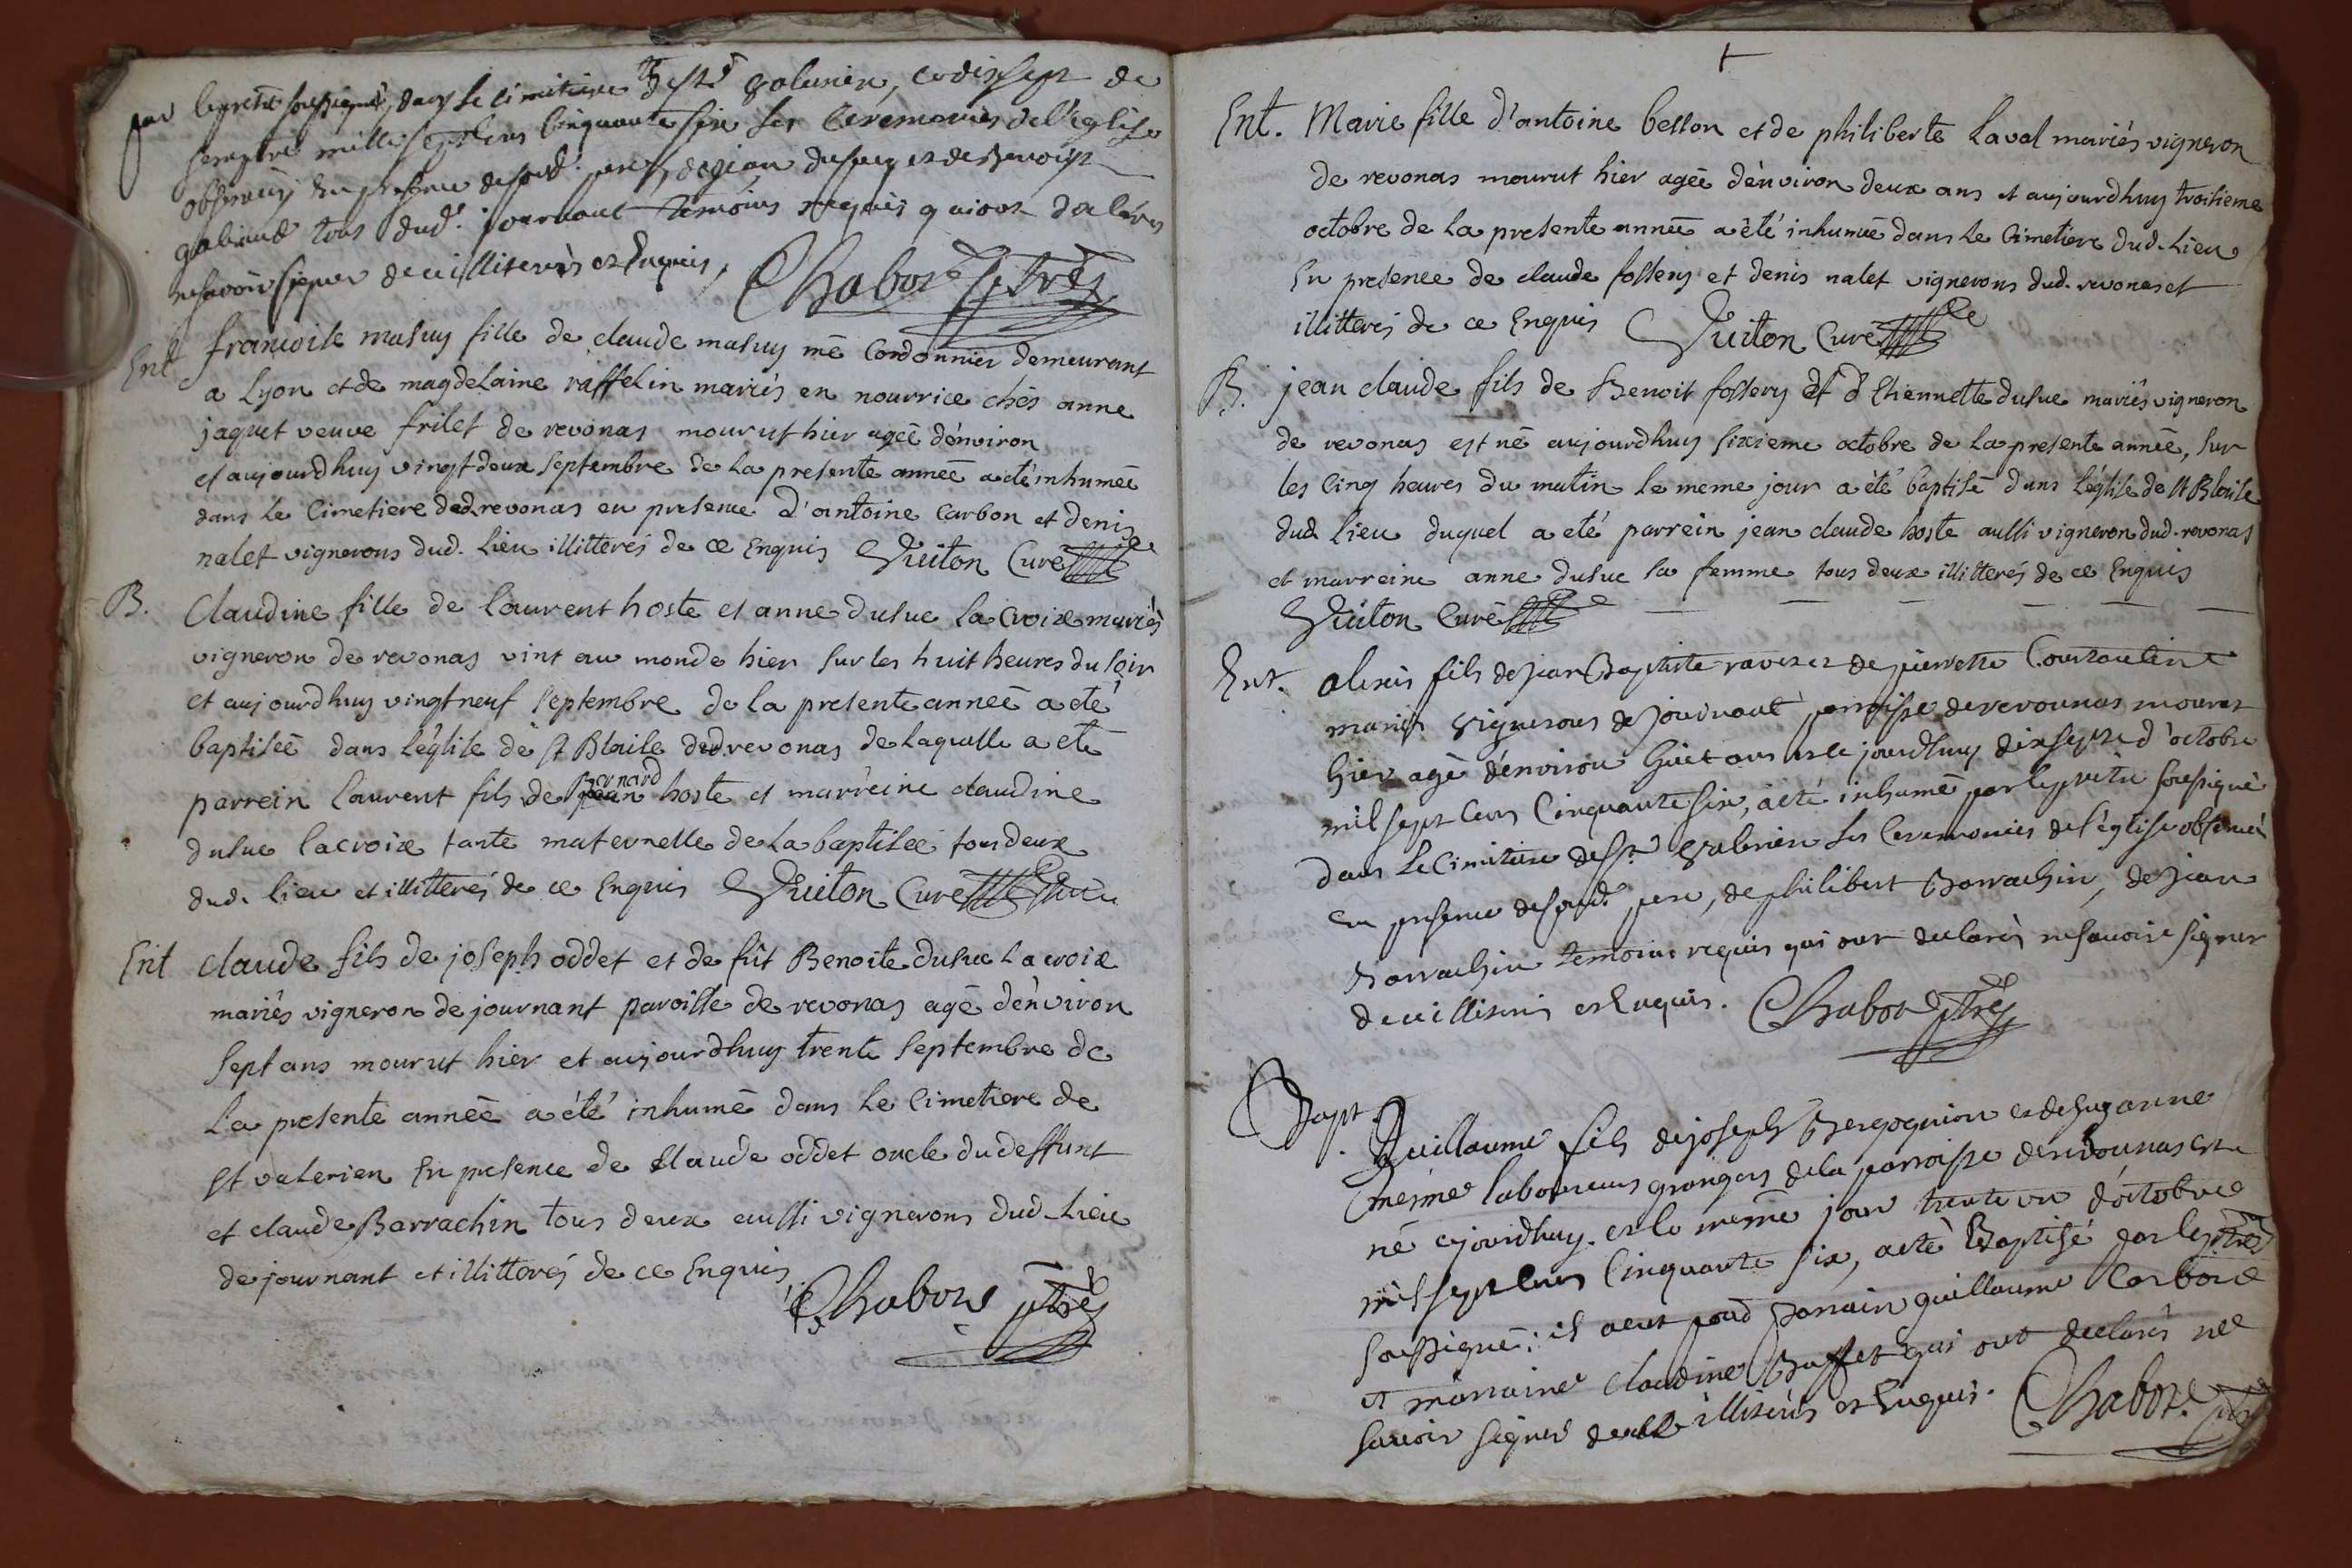 par le pretre soussigné, dans le cimitiere de St valerien, ce dixsept de
septre mille sept cens cinquante six les Cérémonies de l'eglise
observeés en presence de sond. pere, de jean dusuc et de Benoist
gabriand tous dud. journant temoins requis qui ont declarés
ne savoir signer de ce illiterés et Enquis, Chabord ptre
Ent françoise masuy fille de claude masuy me Cordonnier demeurant
a Lyon et de magdelaine raffelin mariés en nourrice chés anne
jaquet veuve frilet de revonas mourut hier agéé d'environ
et aujourdhuy vingt deux septembre de la presente annéé a eté inhuméé
dans le Cimetiere dud. revonas en presence d'antoine Carbon et denis
nalet vignerons dud. Lieu illitterés de ce Enquis Vuiton Curé
B. Claudine fille de laurent hoste et anne dusuc la Croix mariés
vigneron de revonas vint au monde hier sur les huit heures du soir
et aujourdhuy vingt neuf septembre de la presente annéé a eté
baptiséé dans l'eglise de St Blaise dud. revonas de laquelle a eté
parrein laurent fils de Bernard hoste et marreine claudine
dusuc lacroix tante maternelle de la baptiséé tous deux
dud. lieu et illitterés de ce Enquis Vuiton Curé
Ent claude fils de joseph oddet et de fût Benoite dusuc La croix
mariés vigneron de journant paroisse de revonas agé d'environ
sept ans mourut hier et aujourdhuy trente septembre de
la presente annéé a été inhumé dans le Cimetiere de
st valerien En presence de Claude oddet oncle du deffunt
et claude Barrachin tous deux aussi vignerons dud. lieu
de journant et illitterés de ce Enquis
Chabord ptre
Ent. Marie fille d'antoine bellon et de philiberte Laval mariés vigneron
de revonas mourut hier agéé d'environ deux ans et aujourdhuy troisieme
octobre de la presente annéé a été inhuméé dans le Cimetiere dud. Lieu
En presence de claude fossery et denis nalet vignerons dud. revonas et
illitterés de ce Enquis Vuiton Curé
B. jean claude fils de Benoit fossery et d'Ethiennette dusuc mariés vigneron
de revonas est né aujourdhuy sixieme octobre de la presente annéé, sur
les Cinq heures du matin le meme jour a été baptisé dans l'église de St Blaise
dud. lieu duquel a eté parrein jean claude hoste aussi vigneron dud. revonas
et marreine anne dusuc sa femme tous deux illitterés de ce Enquis
Vuiton Curé
Ent. alexis fils de jean Baptiste ravet et de pierrette
mariés vignerons de journant parroisse de revounas mourut
hier agé d'environ huit ans et ce jourdhuy dixsept d'octobre
mil sept cens cinquante six, a eté inhumé par le pretre soussigné
dans le Cimitiere de St. valerien les Ceremonies de l'église observeés
en presence de sond. pere, de philibert Barrachin, de jean
Barrachin temoins requis qui ont declarés ne savoir signer
de ce illiterés et Enquis. Chabord ptre
Bapt. Guillaume fils de joseph Bergognion et de Suzanne
laboureurs grangers de la parroisse de revounas est
né ajourdhuy. et le même jour trente un d'octobre
mil sept cens cinquante six, a eté Baptisé par le ptre
soussigné; il a eut pour parrain guillaume Carbond
et marraine claudine Buffet qui ont declarés ne
savoir signer de ce illiterés et Enquis. Chabord ptre